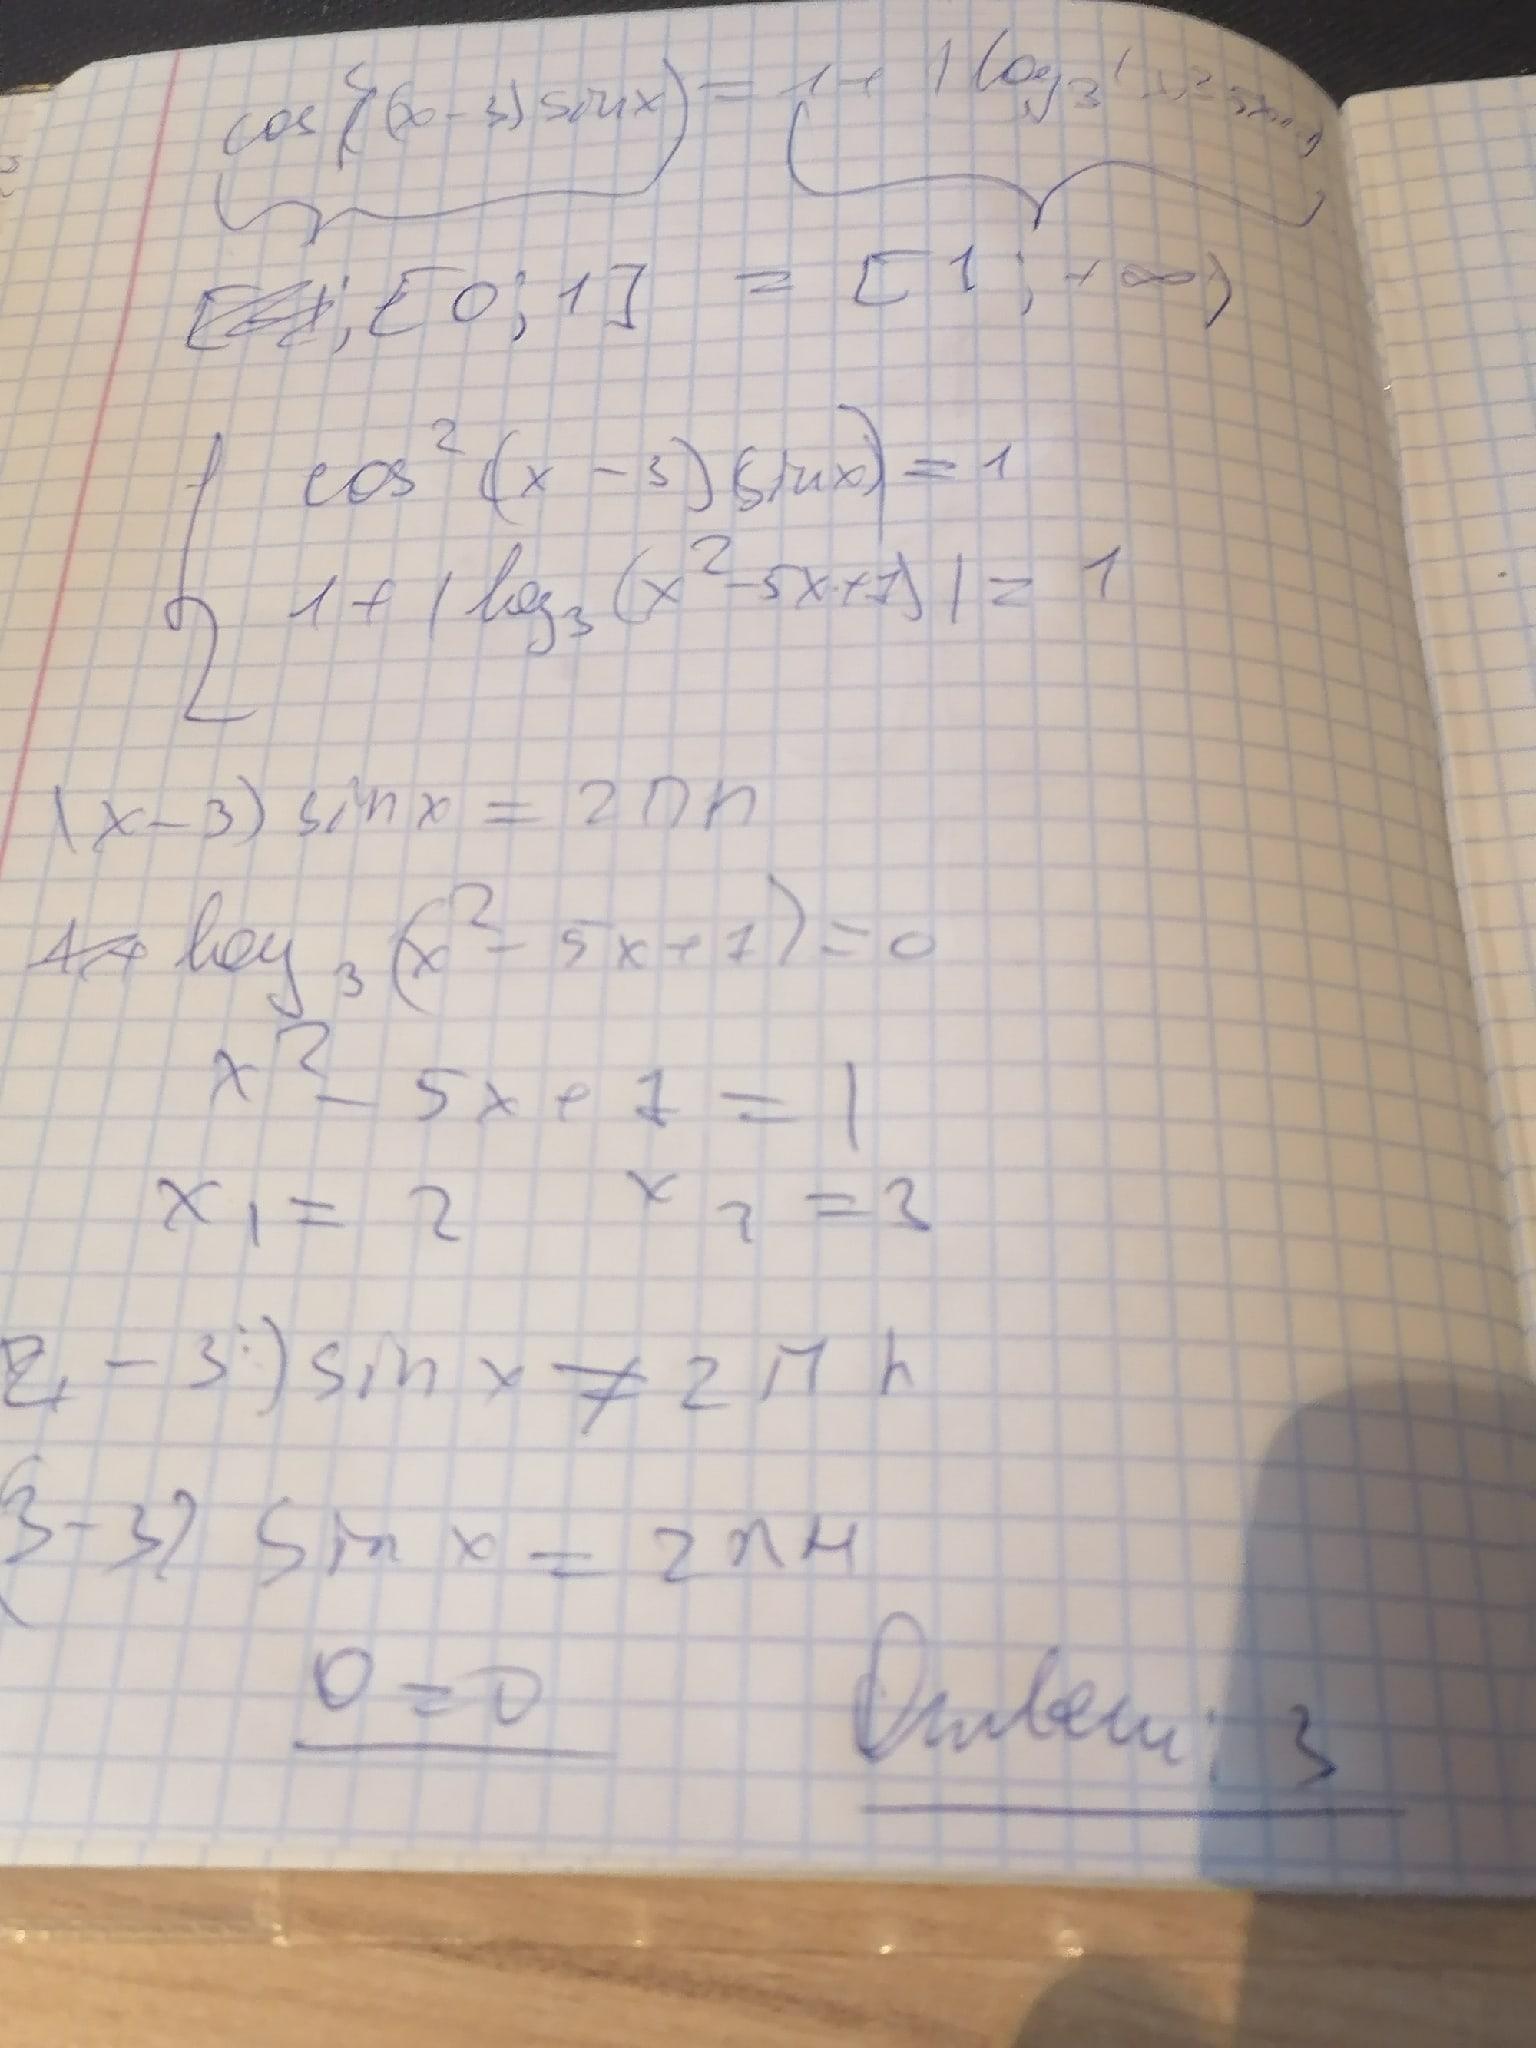 cos²((x-3) sinx) = 1+ |log₃(x²-5x+7)|
[0; 1] = [1; +∞)
cos²(x-3) sinx) = 1
1+ |log₃(x²-5x+7)| = 1
(x-3) sinx = 2πn
log₃(x²-5x+7) = 0
x²-5x+7 = 1
x₁ = 2 x₂ = 3
2-3) sinx ≠ 2πn
(3-3) sinx = 2πn
0 = 0
Ответ: 3